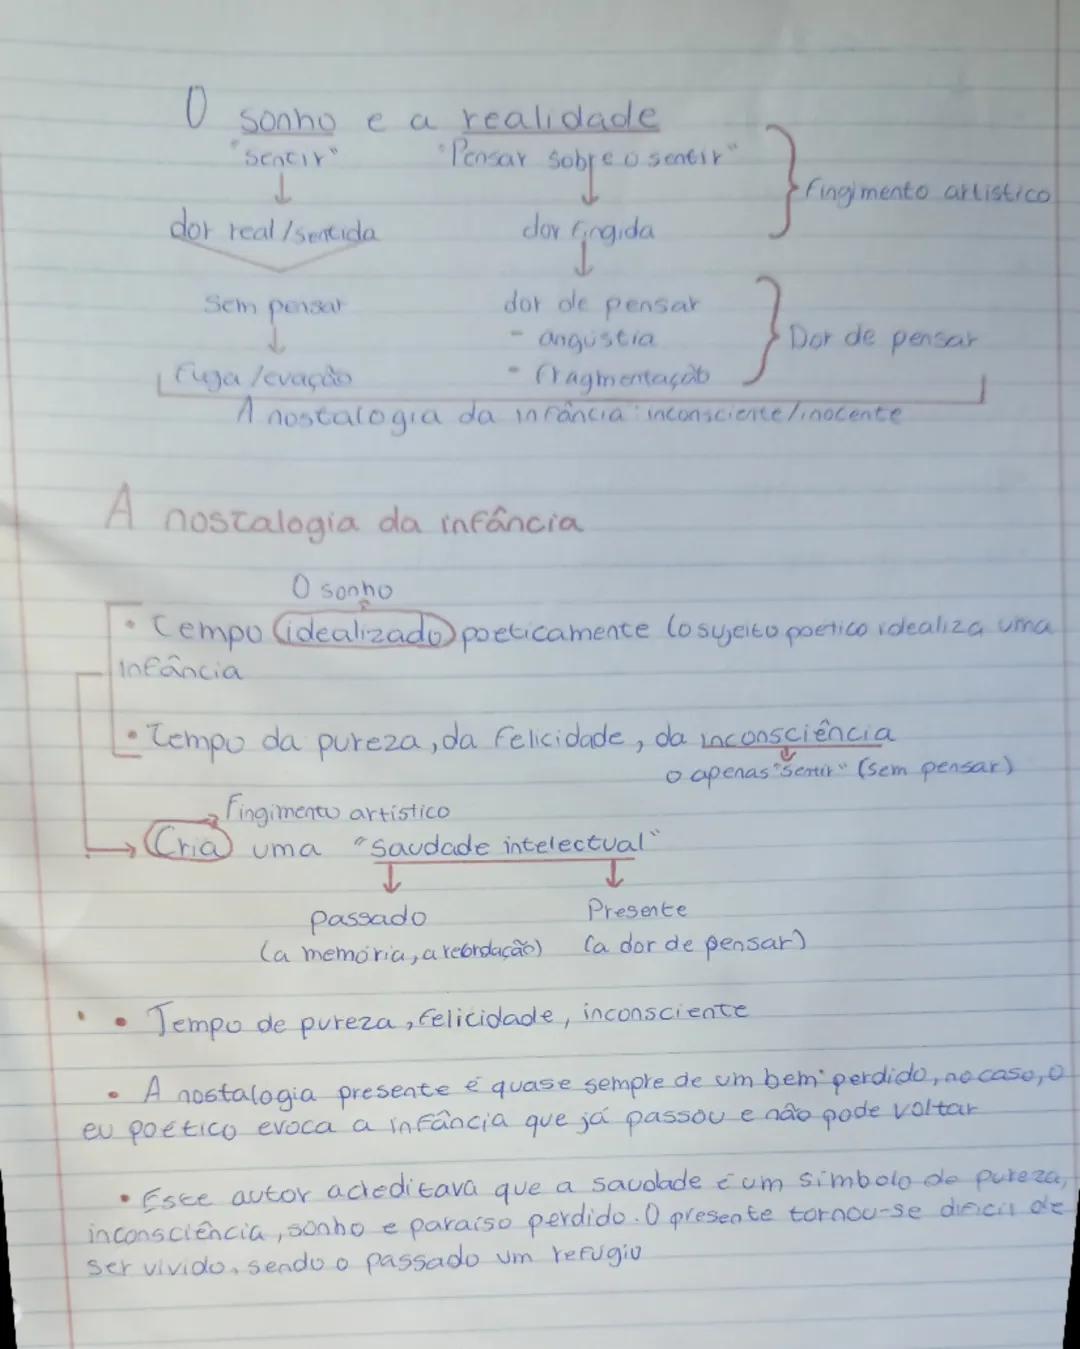 O sonho e a realidade
"sentir" "Pensar sobre o sentir"
fingimento artístico
dor real/sentida dor fingida
Sem pensar dor de pensar
- angústia Dor de pensar
fuga/evação - fragmentação
A nostalogia da infância: inconsciente/inocente
A nostalogia da infância
O sonho
• Tempo idealizado poeticamente (o sujeito poético idealiza uma
infância
• Tempo da pureza, da felicidade, da inconsciência
o apenas "sentir" (sem pensar)
fingimento artístico
Cria uma "saudade intelectual"
passado Presente
(a memória, a recordação) (a dor de pensar)
• Tempo de pureza, felicidade, inconsciente
• A nostalogia presente é quase sempre de um bem perdido, no caso, o
eu poético evoca a infância que já passou e não pode voltar
• Este autor acreditava que a saudade é um símbolo de pureza,
inconsciência, sonho e paraíso perdido. O presente tornou-se difícil de
ser vivido, sendo o passado um refúgio